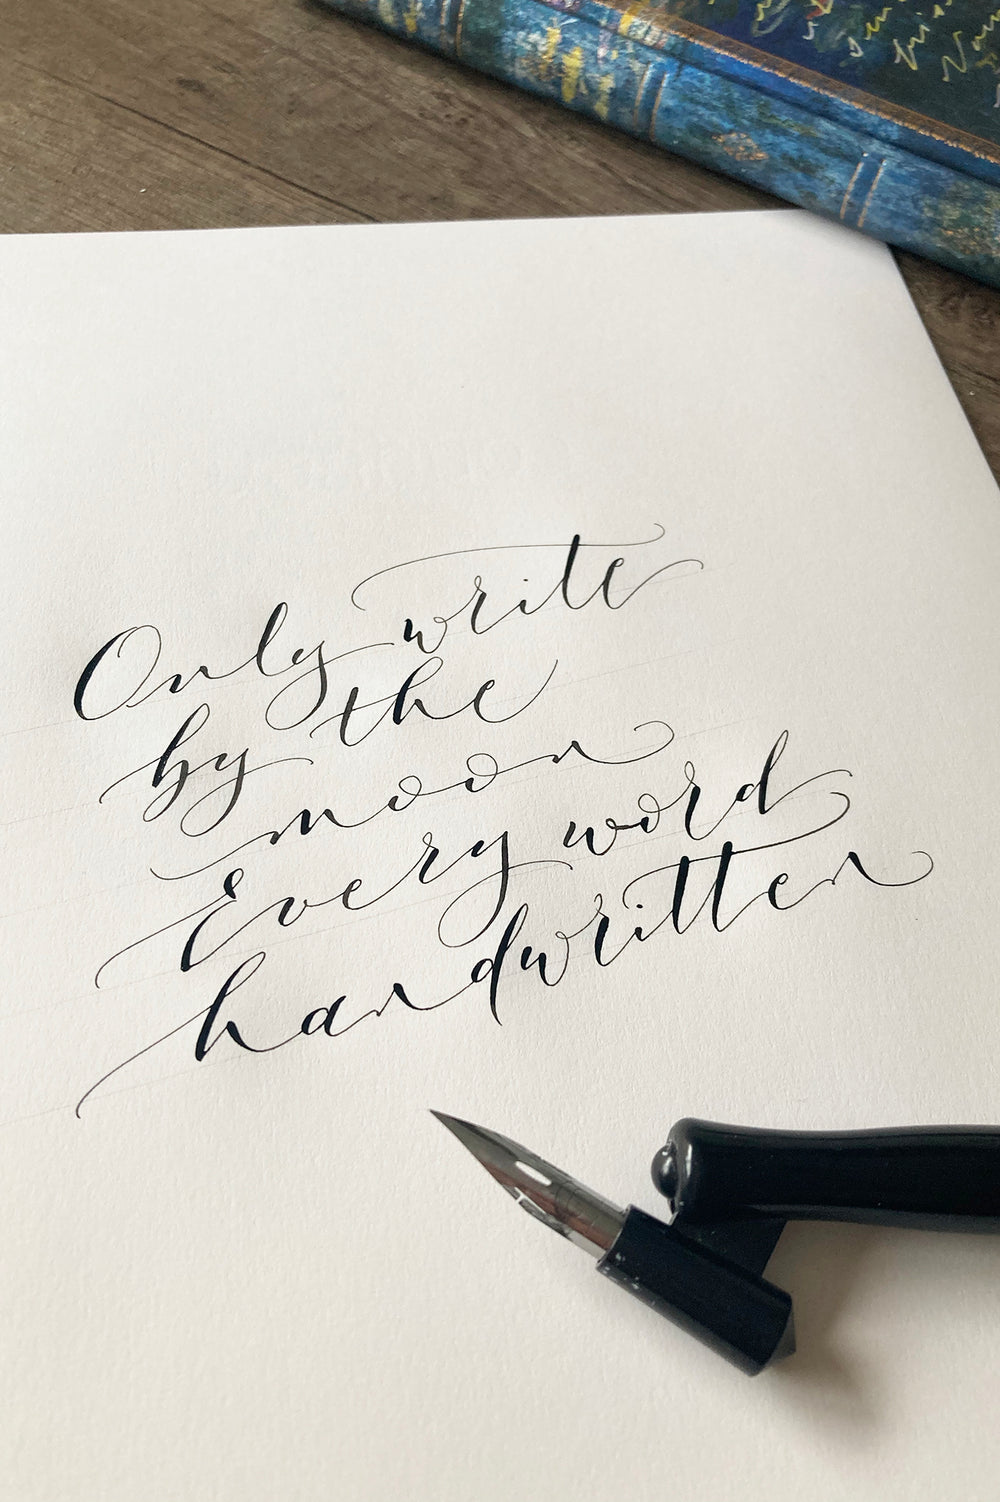 Only write
by the
moon
Every word
handwritten